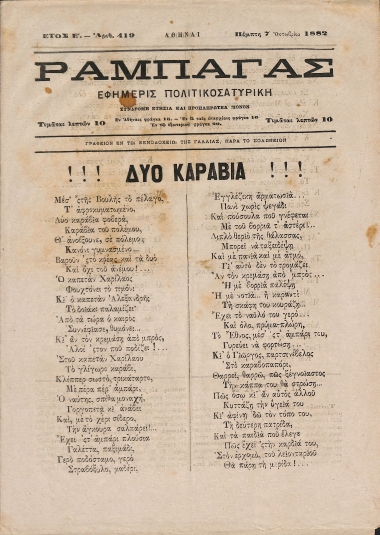 ΕΤΟΣ Ε'. — Ἀριθ. 419 ΑΘΗΝΑΙ Πέμπτη 7 Ὀκτωβρίου 1882
ΡΑΜΠΑΓΑΣ
ΕΦΗΜΕΡΙΣ ΠΟΛΙΤΙΚΟΣΑΤΥΡΙΚΗ
ΣΥΝΔΡΟΜΗ ΕΤΗΣΙΑ ΚΑΙ ΠΡΟΠΛΗΡΩΤΕΑ ΜΟΝΟΝ
Τιμᾶται λεπτῶν 10
Τιμᾶται λεπτῶν 10
ΓΡΑΦΕΙΟΝ ΕΝ ΤΩ ΞΕΝΟΔΟΧΕΙΩ ΤΗΣ ΓΑΛΛΙΑΣ, ΠΑΡΑ ΤΟ ΠΟΛΙΤΕΙΟΝ
!!! ΔΥΟ ΚΑΡΑΒΙΑ !!!
Μέσ' 'στῆς Βουλῆς τὸ πέλαγο,
Τ' ἀφροκυματωμένο,
Δυὸ καράβια φοβερά,
Καράβια τοῦ πολέμου,
Θ' ἀνοίξουνε, σὲ πόλεμο;
Κανόνι γυμνασμένο
Βαροῦν 'στὸ κρέας καὶ τὰ δυὸ
Καὶ ὄχι τοῦ ἀνέμου!...
Ὁ καπετὰν Χαρίλαος
Φουχτόνει τὸ τιμόνι
Κι' ὁ καπετὰν Ἀλέξανδρῆς
Τὸ δοιάκι παλαμίζει
Ἀπὸ τὰ τώρα ὁ καιρὸς
Συννέφιασε, θυμόνει...
Κι' ἂν τὸν κρεμάση ἀπὸ μπρός,
Ἀλοὶ 'ςτον ποῦ ποδίζει!...
Ἐτοῦ καπετὰν Χαρίλαου
Τὸ γλίγωρο καράβι,
Κλίππερ σωστό, τρικάταρτο,
Μὲ πέρα πέρ' ἀμπάρι.
Ὁ ναύτης, σπίθα μοναχή,
Γοργοπετᾷ κι' ἀνάβει
Καί, μὲ τὸ χέρι σίδερο,
Τὴν ἄγκουρα σαλπάρει!...
Ἔχει 'ςτ' ἀμπάρι πλούσια
Γαλέττα, παξιμάδι,
Γερὸ ποδόσταμο, γερὸ
Στραβόξυλο, μαδέρι.
Ἐγγλέζικη ἀρματωσιά...
Πανὶ χωρὶς ψεγάδι
Καὶ πούσουλα ποῦ γνέφεται
Μὲ τοῦ βορριᾶ τ' ἀστέρι!...
Διπλὸ θεριὸ τῆς θάλασσας,
Μπορεῖ νὰ ταξειδέψη
Καὶ μὲ πανιὰ καὶ μὲ ἀτμό,
Γι' αὐτὸ δὲν τὸ τρομάζει.
Ἂν τὸν κρεμάση ἀπὸ μπρὸς...
Ἢ μὲ βορριὰ παλέψη
Ἢ μὲ νοτιὰ.. ἢ καραντὶ
Τὴ σκάρη του κουράζη...
Ἔχει τὸ ναῦλό του γερό...
Καὶ ὅλο, πρύμα-πλώρη,
Τὸ Ἔθνος, μὲς 'ςτ' ἀμπάρι του,
Γυρεύει νὰ φορτώση...
Κι' ὁ Γιῶργος, παρτσινέβελος
Στὸ καραβοπαπόρι,
Θαρρεῖ, θαρρῶ, πῶς ξεγνοίαστος
Τὴν κάππα του θὰ στρώση...
Πῶς ὅσο κι' ἂν αὐτὸς ἀλλοῦ
Κυττάζη τὴν ὑγειά του
Κι' ἀφίνη δῶ τὸν τόπο του,
Τὴ δεύτερη πατρίδα,
Καὶ τὰ παιδιὰ ποῦ ἔλεγε
Πῶς ἔχει 'στὴν καρδιά του,
Θὰ πάρῃ τὴ μερίδα!...